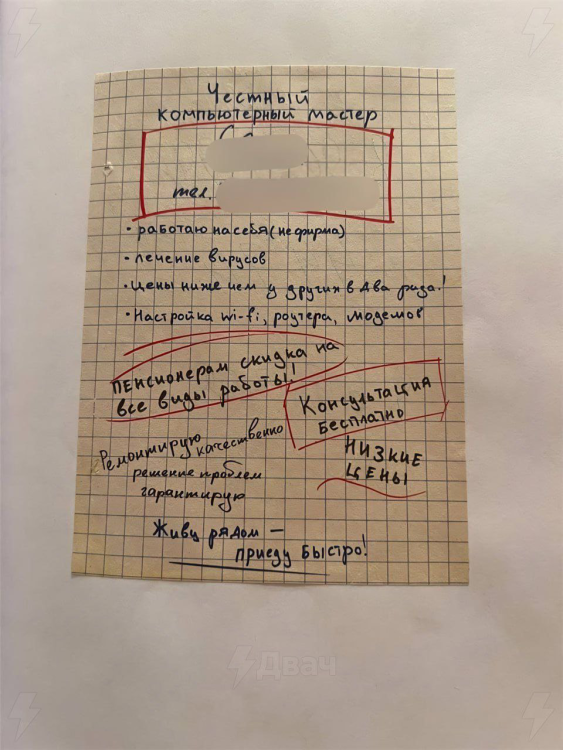 Честный
компьютерный мастер
тел.
• работаю на себя (не фирма)
• лечение вирусов
• Цены ниже чем у других в два раза!
• Настройка wi-fi, роутера, модемов
пенсионерам скидка на
все виды работы!
Консультация
бесплатно
Ремонтирую качественно
решение проблем
гарантирую
Низкие
цены
Живу рядом —
приеду быстро!
Двач